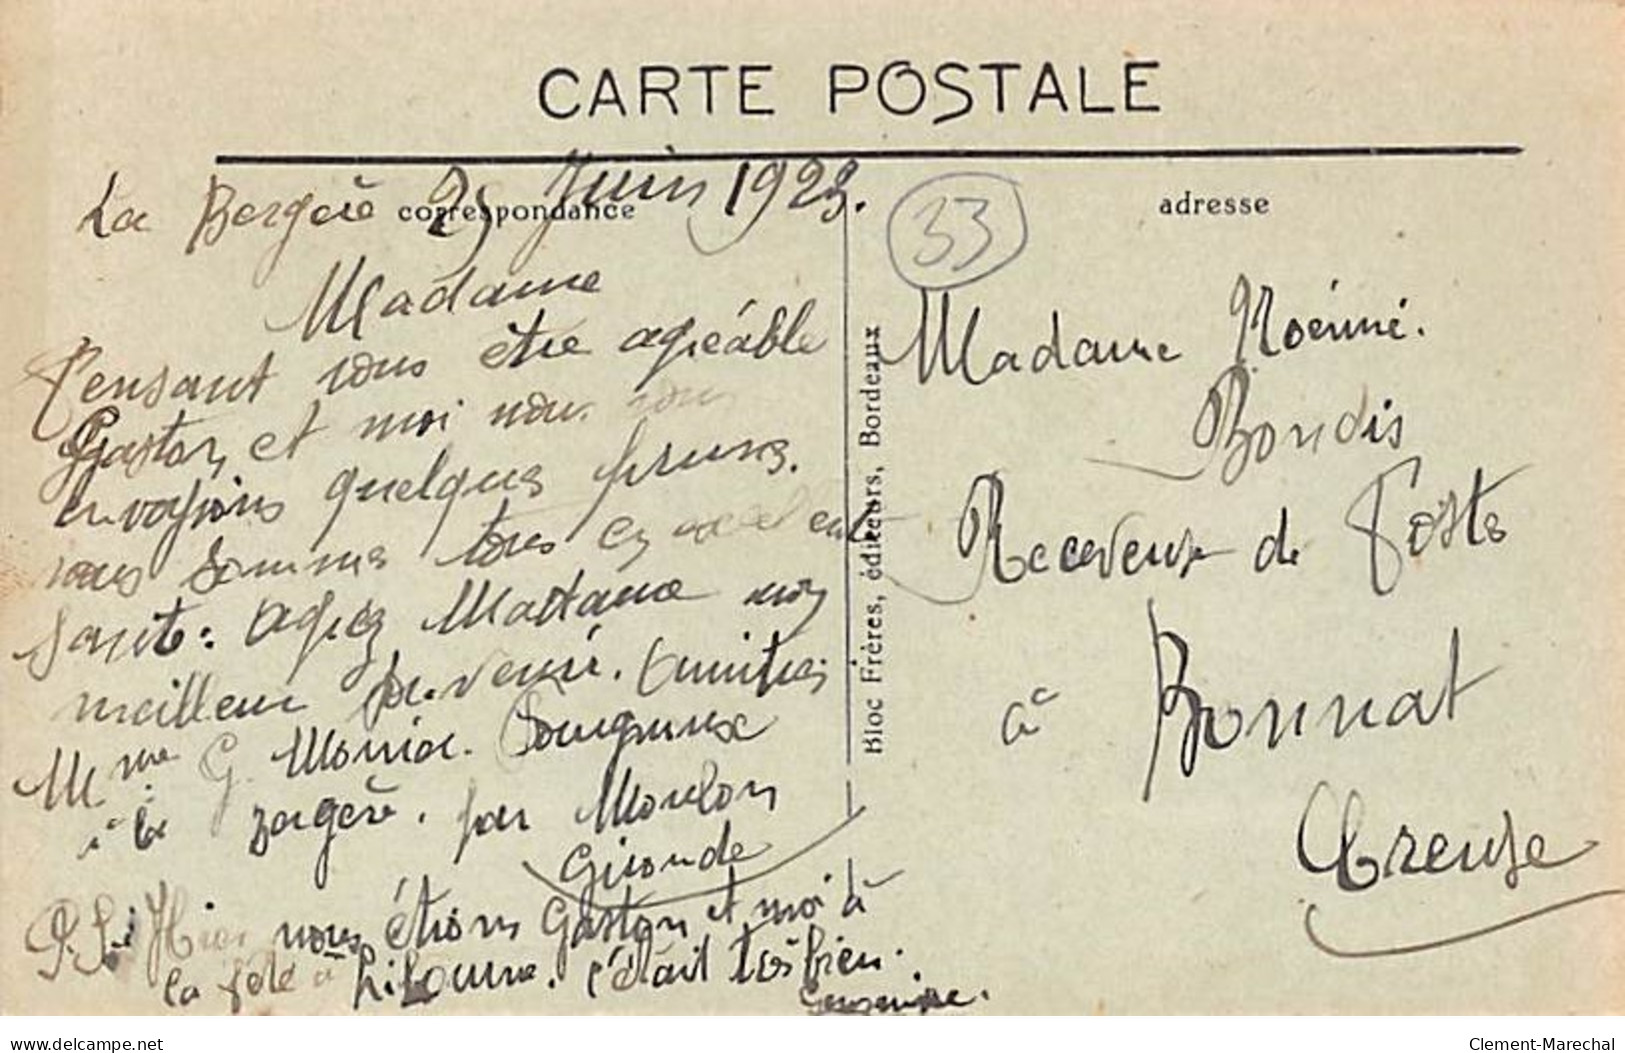 CARTE POSTALE
La Bergère 25 Juin 1923.
correspondance
Madame
Pensant vous être agréable
Gaston et moi nous vous
envoyons quelques prunes.
nous sommes tous en excellente
santé. Agréez Madame mes
meilleur souvenir. Amitiés
Mme G.
à la Bergère. par Moulon
Gironde
P.S. Hier nous étions Gaston et moi à
la fête à Libourne. c'était très bien.
Bloc Frères, éditeurs, Bordeaux
33
adresse
Madame Noémie.
Bondis
Receveuse de Poste
à Bonnat
Creuse
www.delcampe.net
Clement-Marechal